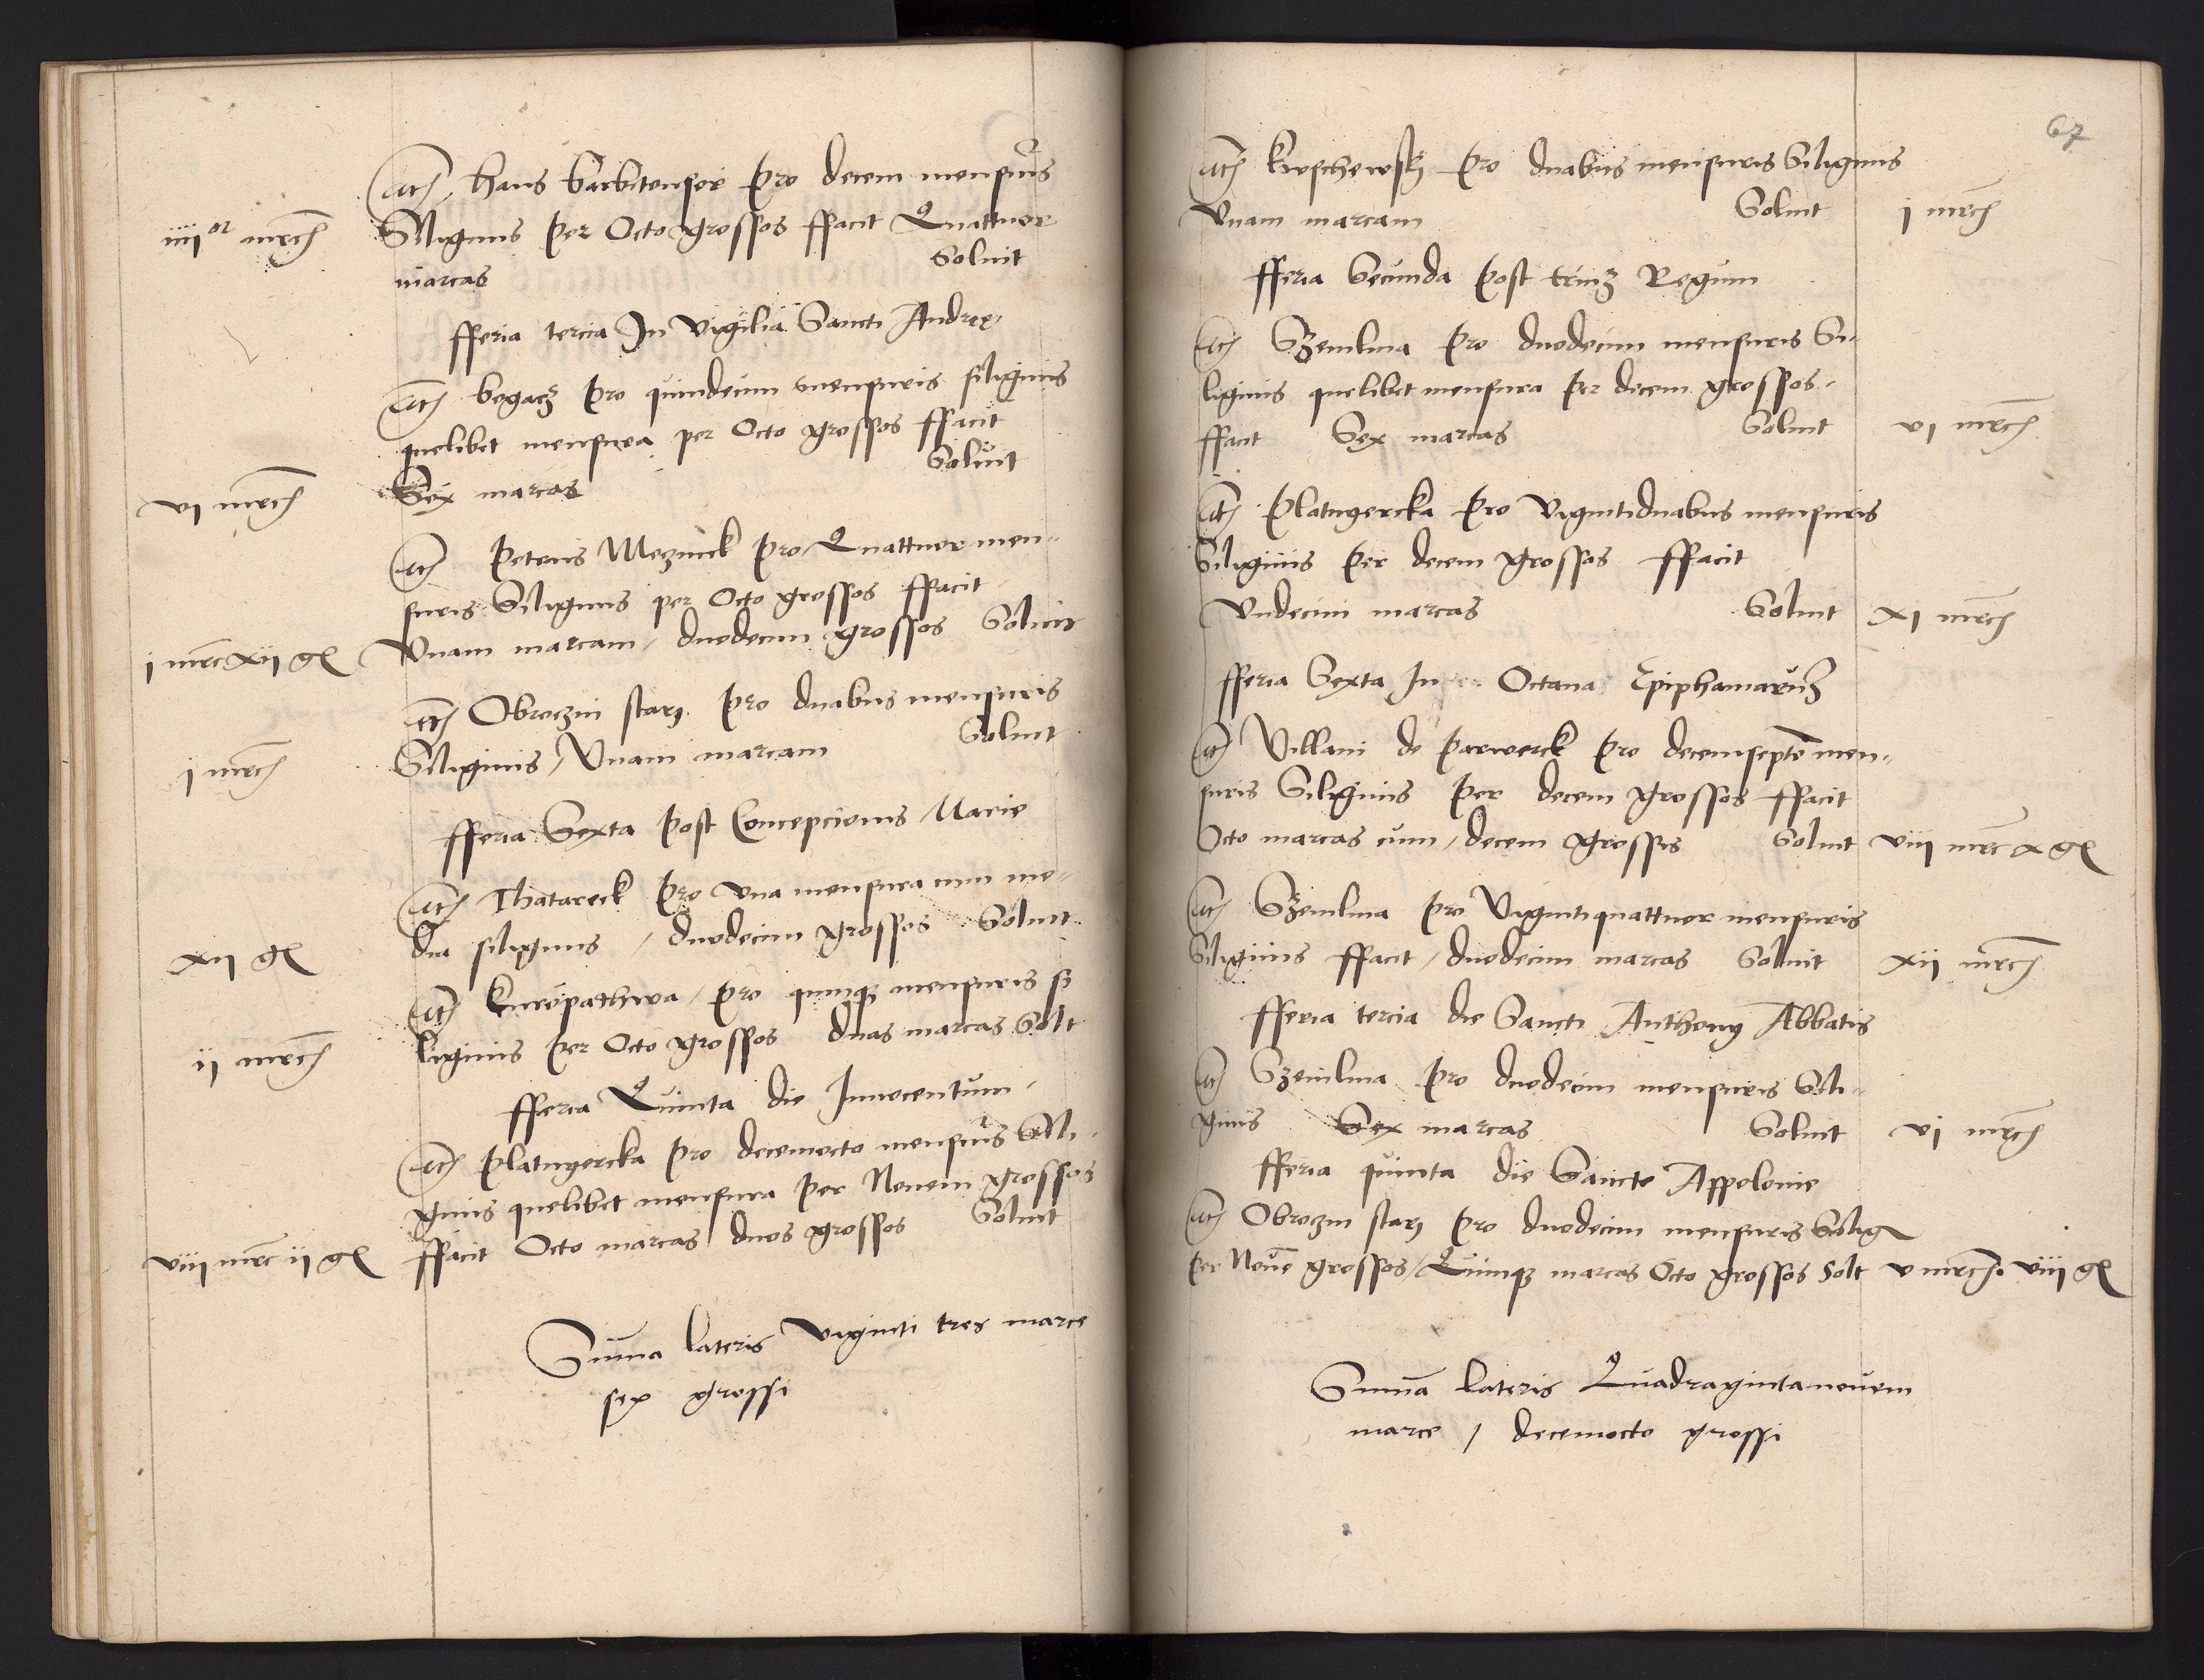 Ite(m) Hans barbitonsor pro decem mensuris
iiii or mrc(h) Siliginis per Octo grossos ffacit Quattuor
marcas Soluit
fferia tercia In vigilia Sancti Andree
Ite(m) bogacz pro quindecim mensuris siliginis
quelibet mensura per Octo grossos ffacit
vi mrc(h) Sex marcas Soluit
Ite(m) Petrus Mezinick pro Quattuor men-
suris Siliginis per Octo grossos ffacit
i mrc xii gr Vnam marcam / duodecim grossos Soluit
Ite(m) Obroczni stary pro duabus mensuris
i mrc(h) Siliginis / Vnam marcam Soluit
fferia Sexta post Concepcionis Marie
Ite(m) Thatareck pro vna mensura cum me-
xii gr dia siliginis / duodecim grossos Soluit
Ite(m) kuropathwa / pro quinq(ue) mensuris si
ii mrc(h) liginis per Octo grossos duas marcas Solt
fferia Quinta die Innocentum
Ite(m) Platnyercka pro decemocto mensuris Sili-
ginis quelibet mensura per Nouem grossos
viii mrc ii gr ffacit Octo marcas duos grossos Soluit
Summa lateris viginti tres marce
sex grossi
67
Ite(m) pro duabus mensuris Siliginis
Vnam marcam Soluit i mrc(h)
fferia Secunda post triu(m) Regum
Ite(m) Szemlina pro duodecim mensuris Si-
liginis quelibet mensura per decem grossos
ffacit Sex marcas Soluit vi mrc(h)
Ite(m) Platnyercka pro Vigintiduabus mensuris
Siliginis per decem grossos ffacit
Vndecim marcas Soluit xi mrc(h)
fferia Sexta In Octaua Epiphaniaru(m)
Ite(m) Villani de parwerck pro decemsepte(m) men-
suris Siliginis per decem grossos ffacit
Octo marcas cum / decem grossis Soluit viii mrc x gr
Ite(m) Szemlina pro Vigintiquattuor mensuris
Siliginis ffacit / duodecim marcas Soluit xii mrc(h)
fferia tercia die Sancti Anthony Abbatis
Ite(m) Szemlina pro duodecim mensuris Sili-
ginis Sex marcas Soluit vi mrc(h)
fferia quinta die Sancte Appolonie
Ite(m) Obroczni stary pro duodecim mensuris Silig
per Noue(m) grossos / Quinq(ue) marcas Octo grossos Solt v mrc(h). viii gr
Summa lateris Quadragintanouem
marce / decemocto grossi